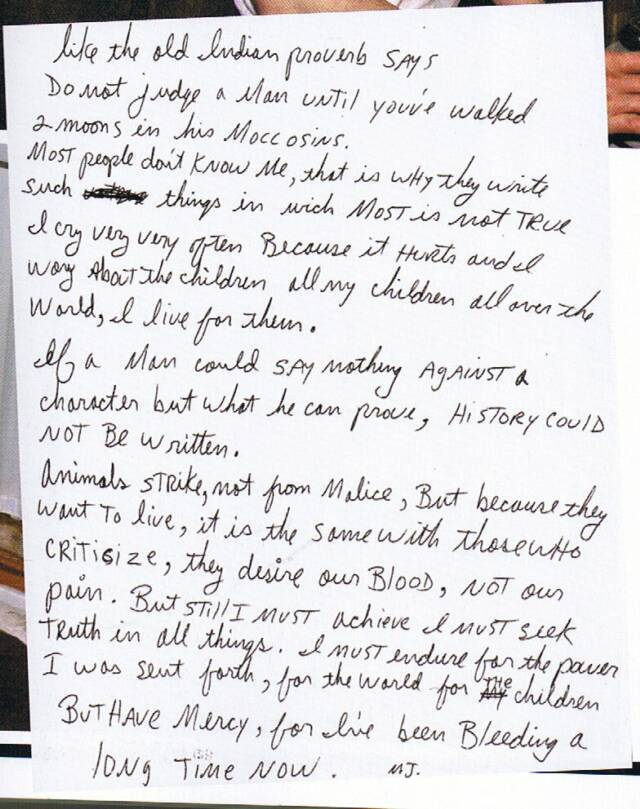 like the old Indian proverb SAYS
Do not judge a Man until you've walked
2 moons in his Moccosins.
Most people don't Know Me, that is wHy they write
such things in wich MOST is not TRUE
I cry very very often Because it Hurts and I
wory About the children all my children all over the
World, I live for them.
If a Man could SAY nothing AGAINST a
character but what he can prove, HISTORY COULD
NOT BE written.
Animals STRIKE, not from Malice, But because they
want To live, it is the same with those who
CRITISIZE, they desire our BLOOD, NOT our
pain. But STill I MUST achieve I MUST SEEK
TRuth in all things. I MUST endure for the power
I was sent forth, for the world for THE children
BUT HAVE Mercy, for I've been Bleeding a
long Time NOW. MJ.